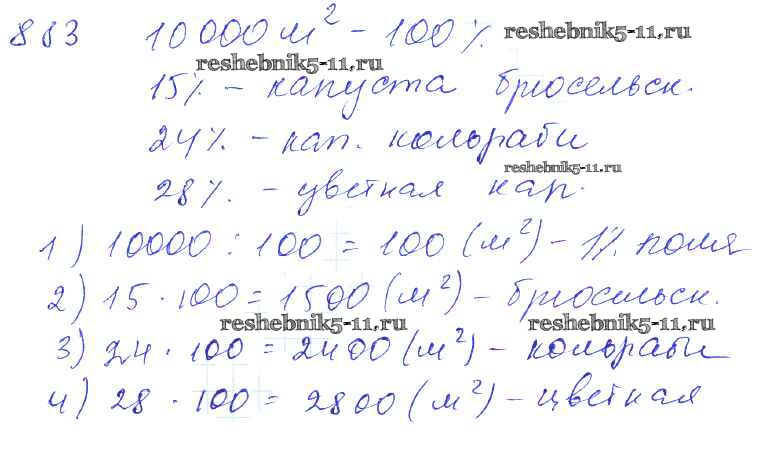 883 10000 м² - 100% reshebnik5-11.ru
reshebnik5-11.ru
15% - капуста брюсельск.
24% - кап. кольраби
reshebnik5-11.ru
28% - цветная кап.
1) 10000 : 100 = 100 (м²) - 1% поля
2) 15 · 100 = 1500 (м²) - брюсельск.
reshebnik5-11.ru reshebnik5-11.ru
3) 24 · 100 = 2400 (м²) - кольраби
4) 28 · 100 = 2800 (м²) - цветная